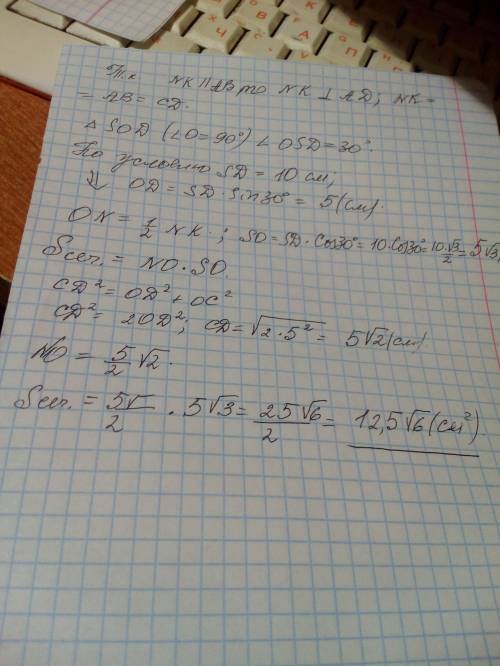 Т.к. NK || AB то NK ⊥ AD; NK =
= AB = CD.
△ SOD (∠O = 90°) ∠OSD = 30°.
По условию SD = 10 см,
⇓ OD = SD · Sin 30° = 5 (см).
ON = 1/2 NK ; SO = SD · Cos 30° = 10 · Cos 30° = 10 · √3/2 = 5√3
Sсеч. = NO · SO.
CD² = OD² + OC²
CD² = 2OD²; CD = √(2 · 5²) = 5√2 (см)
NO = 5/2 √2.
Sсеч. = 5√/2 · 5√3 = 25√6/2 = 12,5√6 (см²)